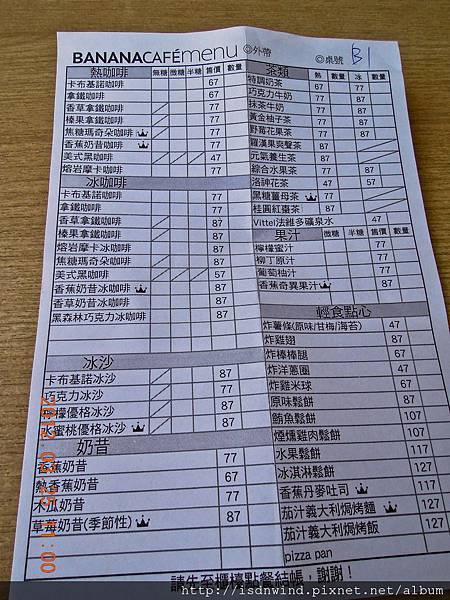 BANANACAFÉmenu ◎外帶 ◎桌號 B1
熱咖啡 無糖 微糖 半糖 售價 數量
卡布基諾咖啡 67
拿鐵咖啡 67
香草拿鐵咖啡 77
榛果拿鐵咖啡 77
焦糖瑪奇朵咖啡 77
香蕉奶昔咖啡 77
美式黑咖啡 47
熔岩摩卡咖啡 77
冰咖啡
卡布基諾咖啡 77
拿鐵咖啡 77
香草拿鐵咖啡 87
榛果拿鐵咖啡 87
熔岩摩卡冰咖啡 87
焦糖瑪奇朵咖啡 87
美式黑咖啡 57
香蕉奶昔冰咖啡 87
香草奶昔冰咖啡 87
黑森林巧克力冰咖啡 87
冰沙
卡布基諾冰沙 87
巧克力冰沙 77
檸檬優格冰沙 87
水蜜桃優格冰沙 87
奶昔
香蕉奶昔 77
熱香蕉奶昔 67
木瓜奶昔 77
草莓奶昔(季節性) 87
茶類 熱 數量 冰 數量
特調奶茶 67 77
巧克力牛奶 77 87
抹茶牛奶 77 87
黃金柚子茶 77 77
野莓花果茶 77 87
羅漢果爽聲茶 87
元氣養生茶 87
綜合水果茶 77 87
洛神花茶 47 57
黑糖薑母茶 77
桂圓紅棗茶 87
Vittel法維多礦泉水 47
果汁 微糖 半糖 售價 數量
檸檬蜜汁 77
柳丁原汁 77
葡萄柚汁 77
香蕉奇異果汁 87
輕食點心
炸薯條(原味/甘梅/海苔) 47
炸雞翅 87
炸棒棒腿 67
炸洋蔥圈 47
炸雞米球 67
原味鬆餅 87
鮪魚鬆餅 107
煙燻雞肉鬆餅 107
水果鬆餅 117
冰淇淋鬆餅 127
香蕉丹麥吐司 117
茄汁義大利焗烤麵 127
茄汁義大利焗烤飯 127
pizza pan
請先至櫃檯點餐結帳，謝謝！
http://isdnwind.pixnet.net/album